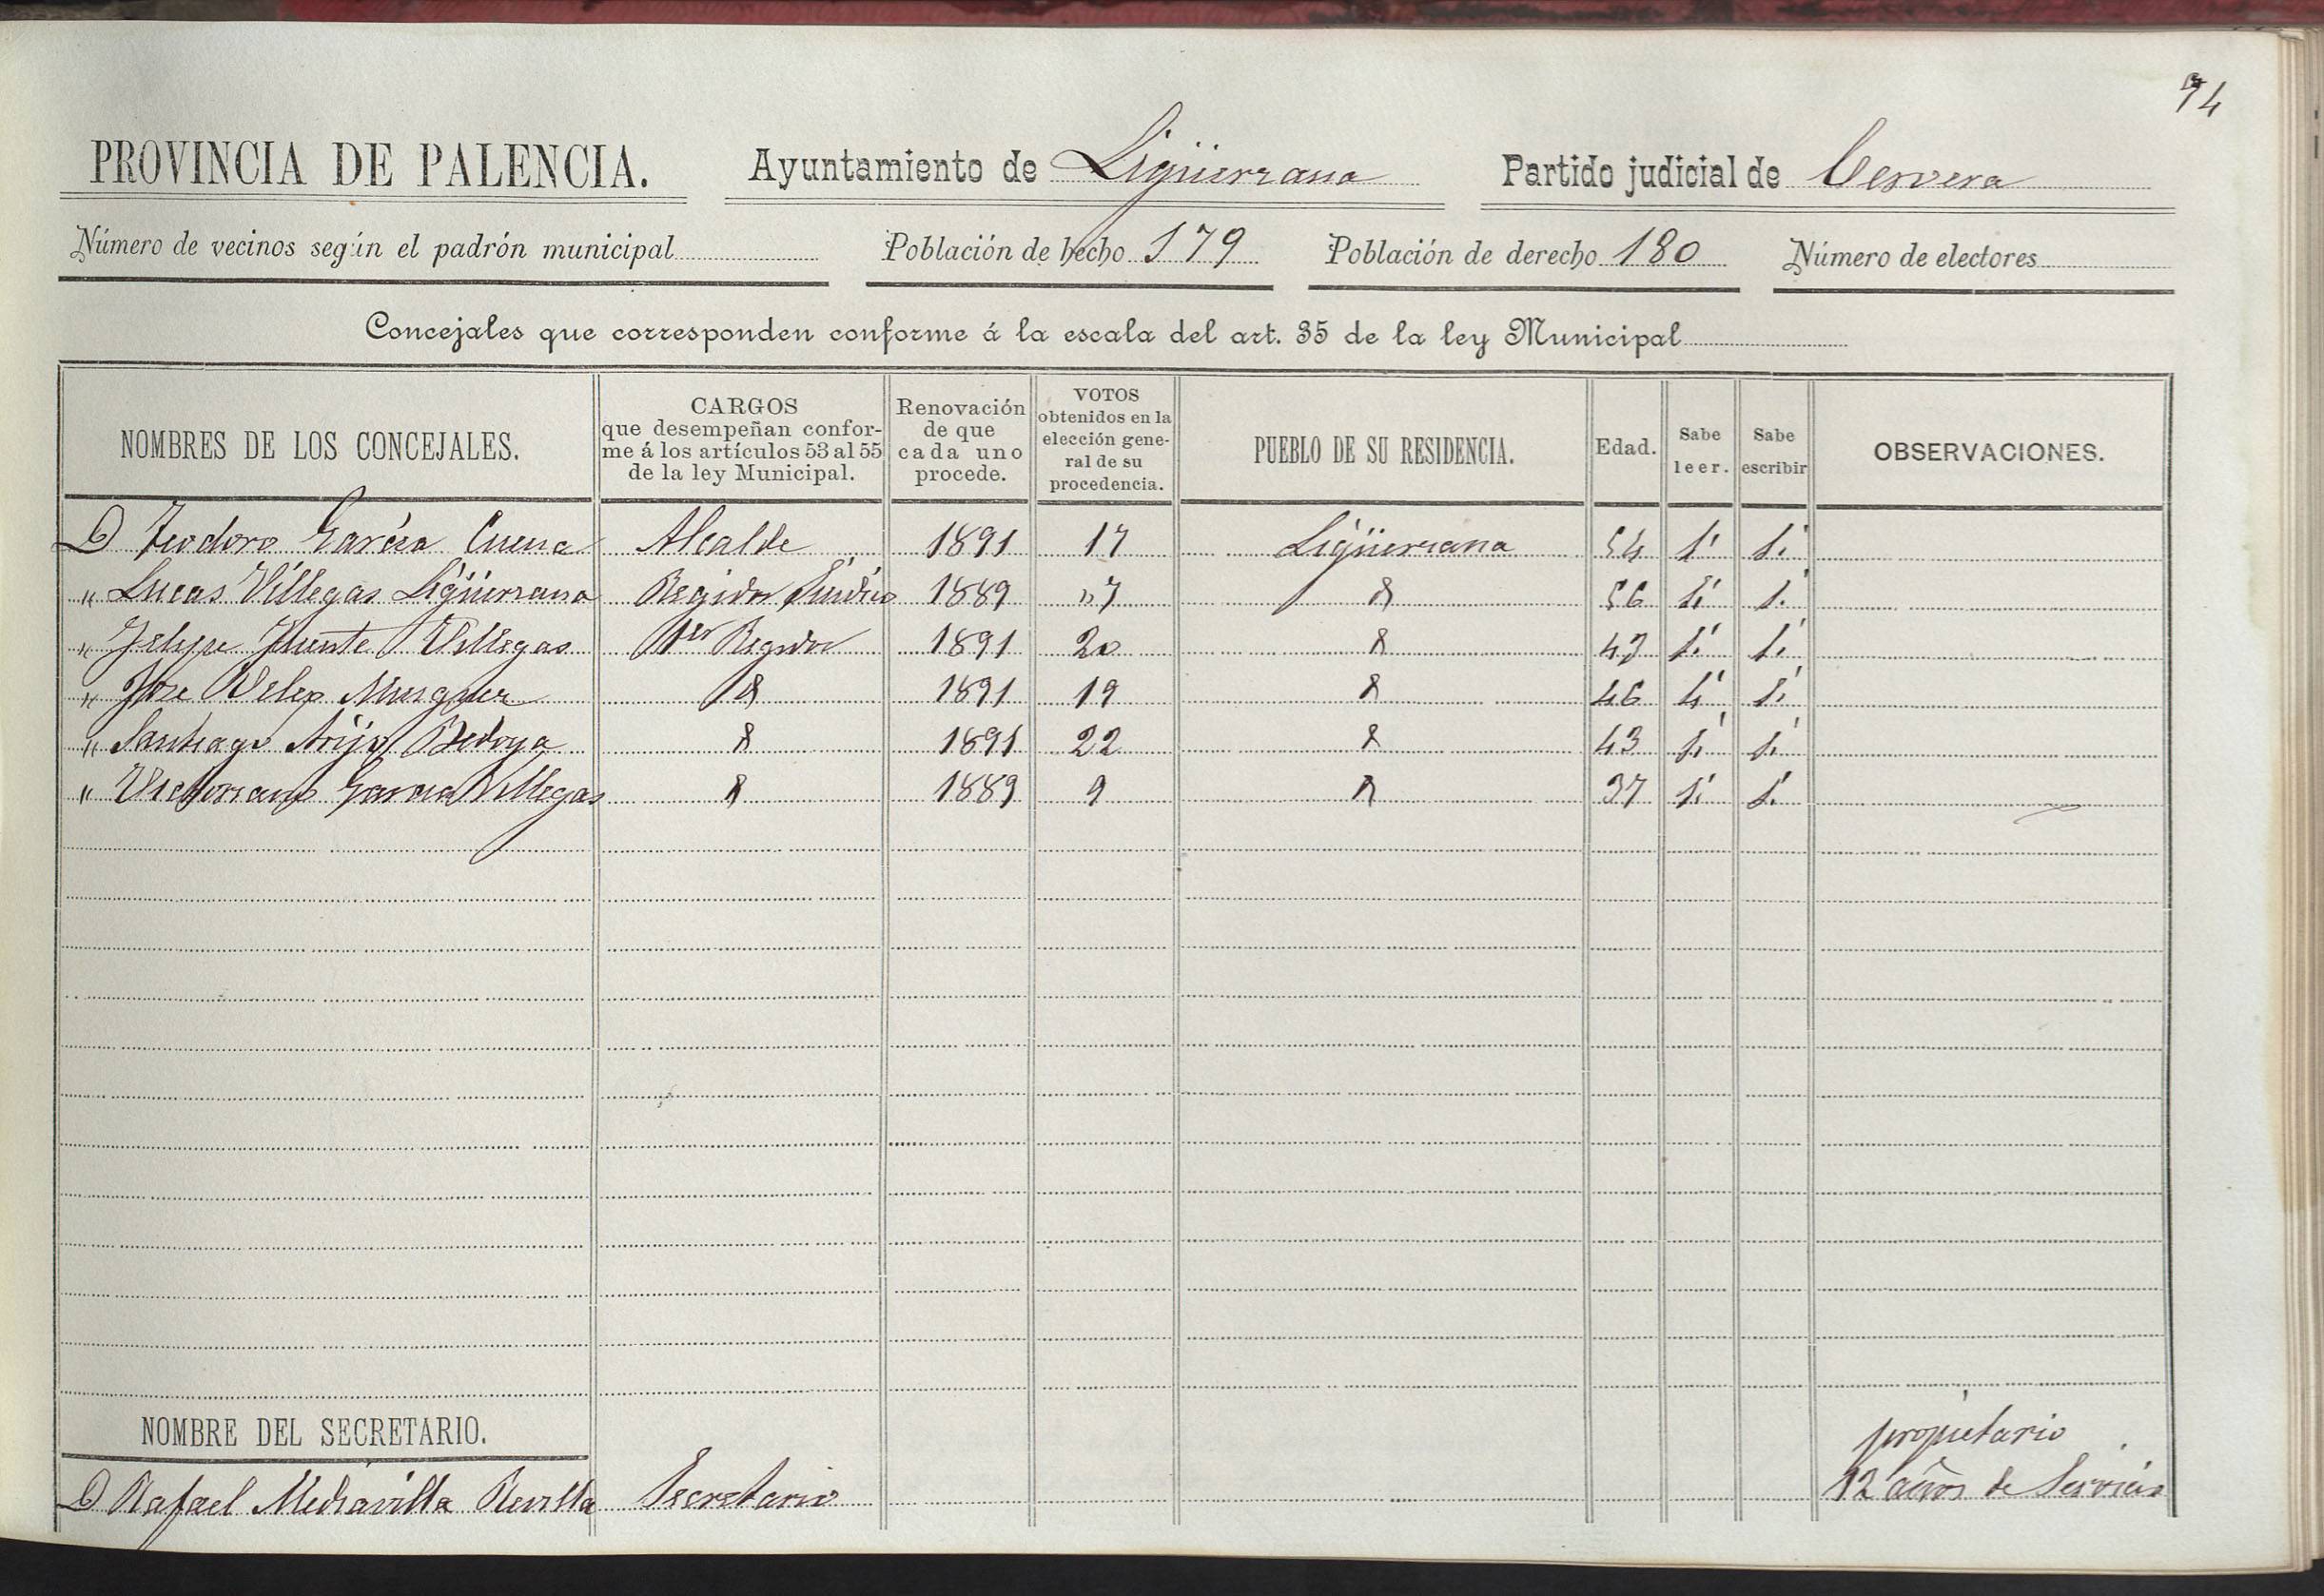 94
PROVINCIA DE PALENCIA. Ayuntamiento de Ligüerzana Partido judicial de Cervera
Número de vecinos según el padrón municipal Población de hecho 179 Población de derecho 180 Número de electores
Concejales que corresponden conforme á la escala del art. 35 de la ley Municipal
NOMBRES DE LOS CONCEJALES. CARGOS que desempeñan conforme á los artículos 53 al 55 de la ley Municipal. Renovación de que cada uno procede. VOTOS obtenidos en la elección general de su procedencia. PUEBLO DE SU RESIDENCIA. Edad. Sabe leer. Sabe escribir OBSERVACIONES.
D Teodoro García Cuena Alcalde 1891 17 Ligüerzana 54 si si
" Lucas Villegas Ligüerzana Regidor Síndico 1889 "7 56 si si
" Felipe Fuente Villegas 1er Regidor 1891 20 si si
" Jose Velez 1891 19 46 si si
" Santiago Arijo Bedoya 1891 22 43 si si
" Victoriano Garcia Villegas 1889 9 37 si si
NOMBRE DEL SECRETARIO.
propietario
D Rafael Mediavilla Revilla Secretario 12 años de Servicio